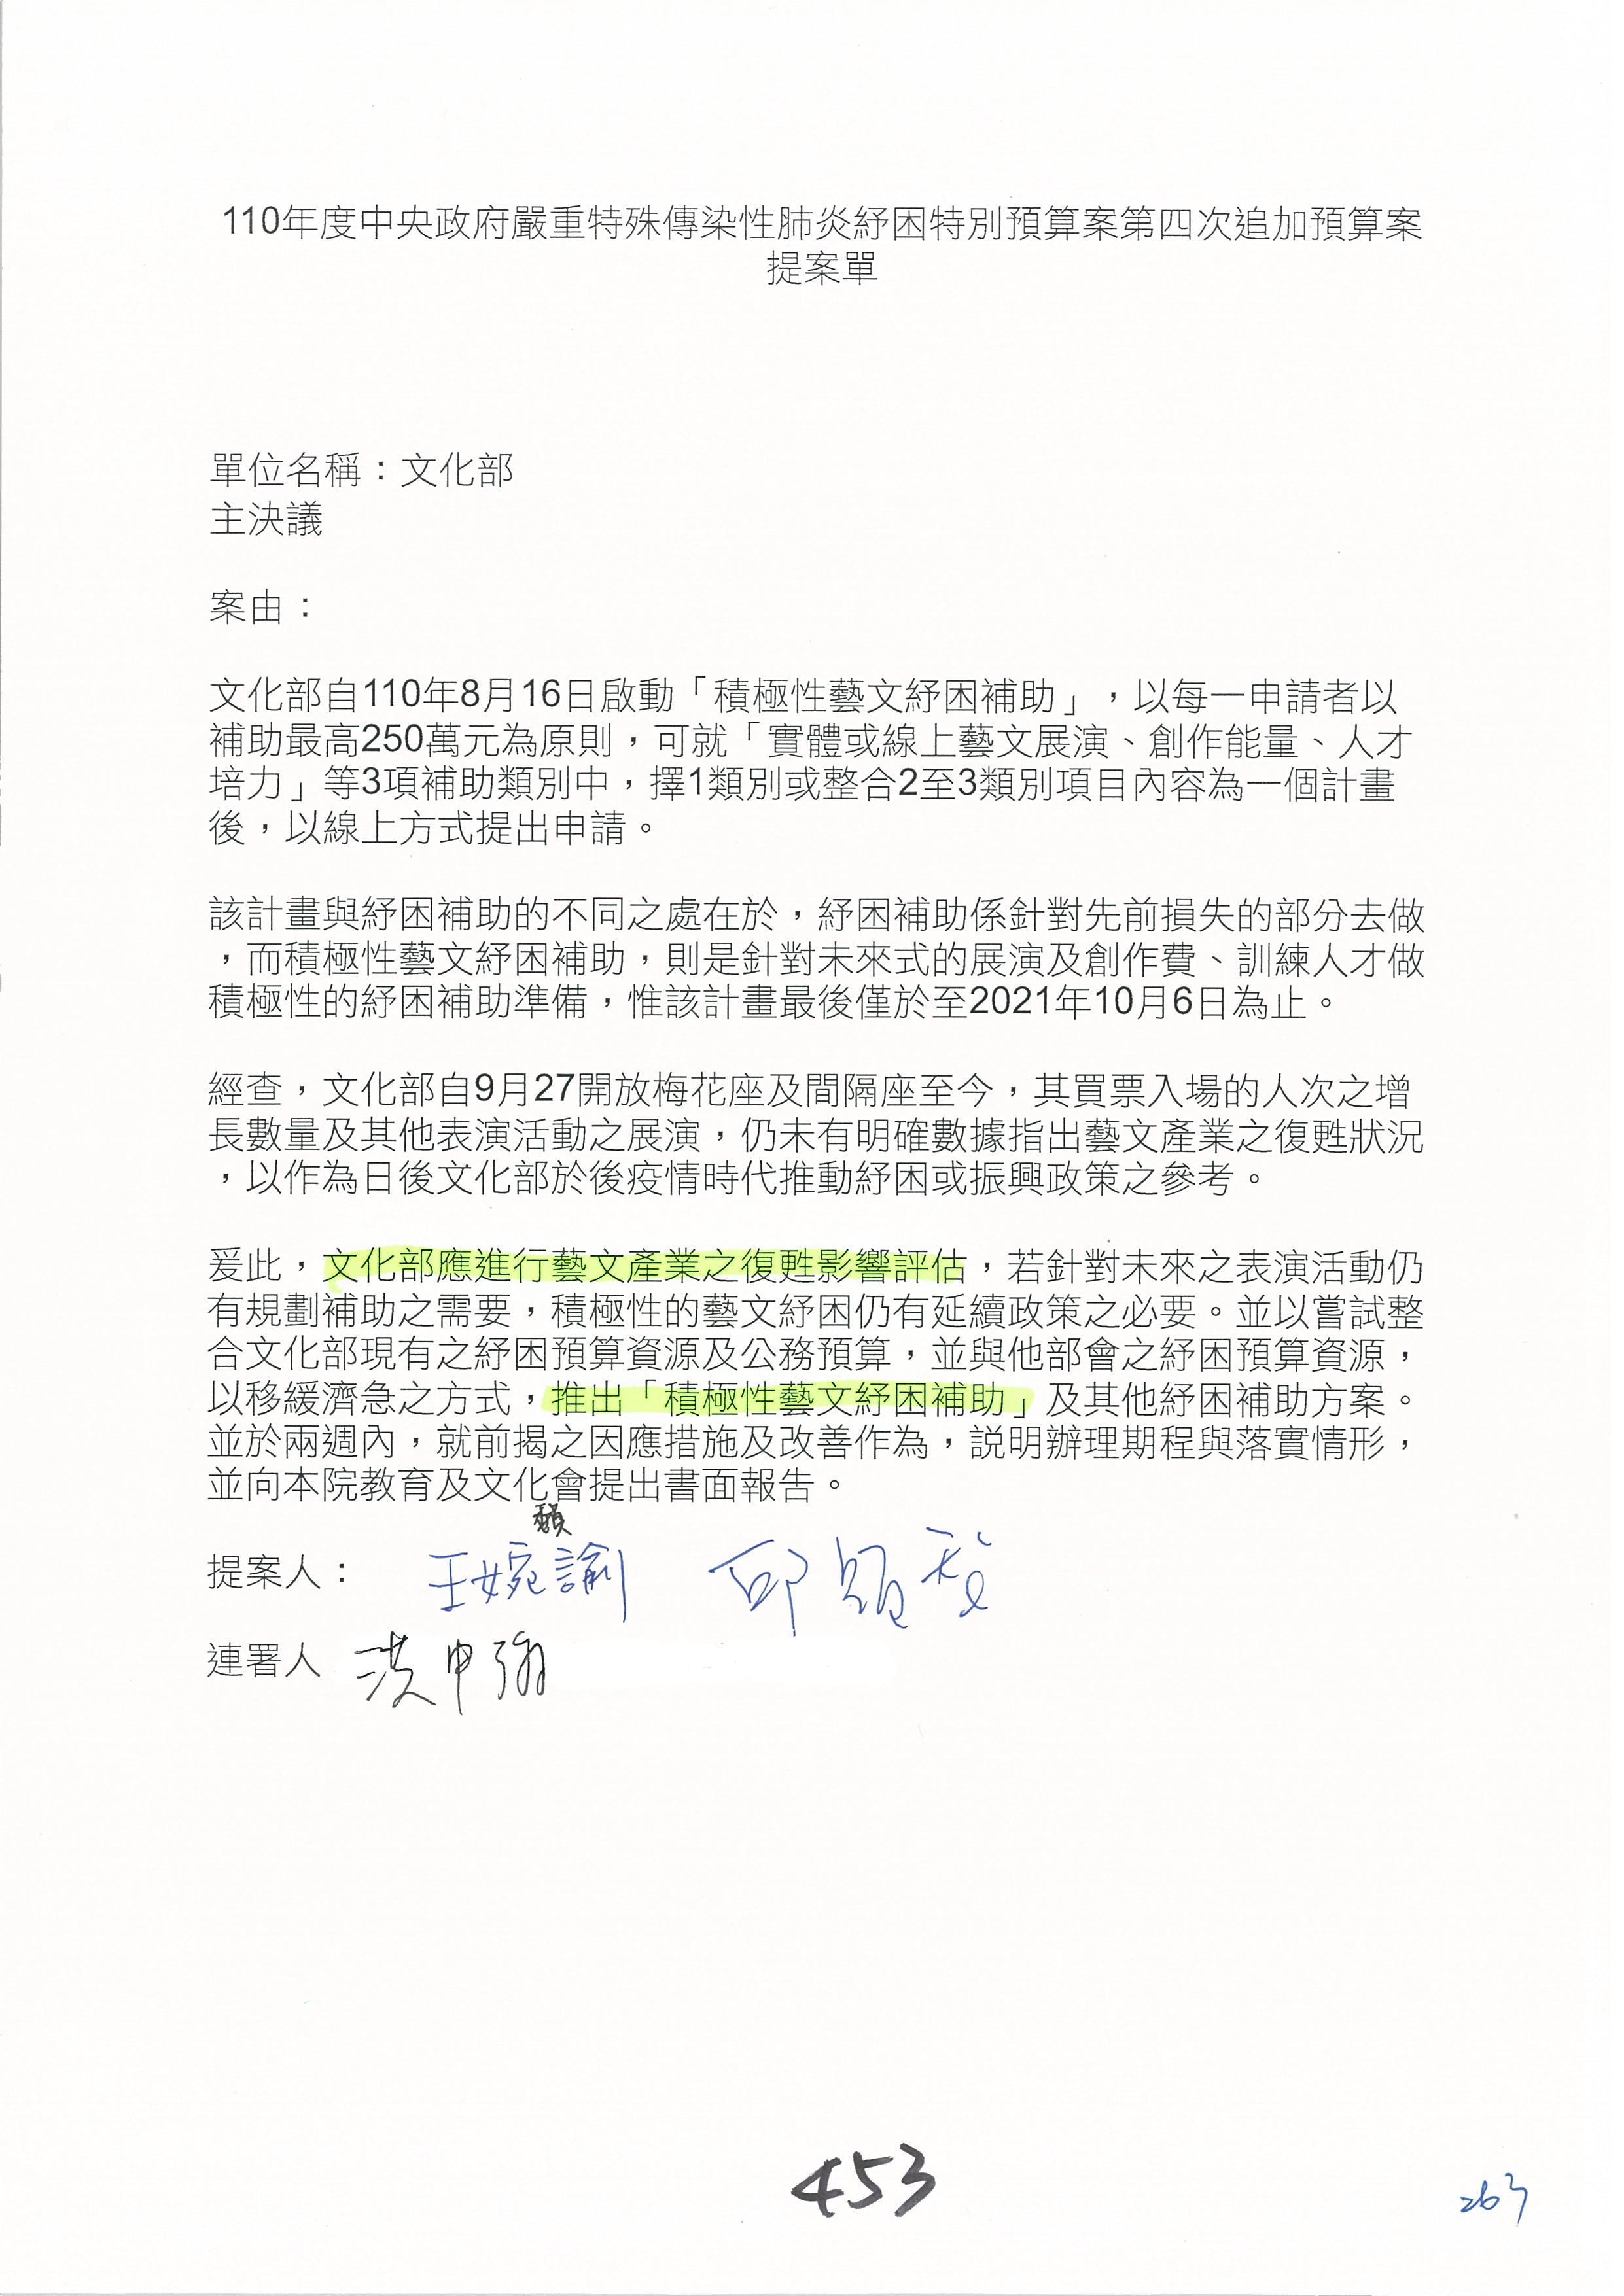 110年度中央政府嚴重特殊傳染性肺炎紓困特別預算案第四次追加預算案
提案單
單位名稱：文化部
主決議
案由：
文化部自110年8月16日啟動「積極性藝文紓困補助」，以每一申請者以
補助最高250萬元為原則，可就「實體或線上藝文展演、創作能量、人才
培力」等3項補助類別中，擇1類別或整合2至3類別項目內容為一個計畫
後，以線上方式提出申請。
該計畫與紓困補助的不同之處在於，紓困補助係針對先前損失的部分去做
，而積極性藝文紓困補助，則是針對未來式的展演及創作費、訓練人才做
積極性的紓困補助準備，惟該計畫最後僅於至2021年10月6日為止。
經查，文化部自9月27開放梅花座及間隔座至今，其買票入場的人次之增
長數量及其他表演活動之展演，仍未有明確數據指出藝文產業之復甦狀況
，以作為日後文化部於後疫情時代推動紓困或振興政策之參考。
爰此，文化部應進行藝文產業之復甦影響評估，若針對未來之表演活動仍
有規劃補助之需要，積極性的藝文紓困仍有延續政策之必要。並以嘗試整
合文化部現有之紓困預算資源及公務預算，並與他部會之紓困預算資源，
以移緩濟急之方式，推出「積極性藝文紓困補助」及其他紓困補助方案。
並於兩週內，就前揭之因應措施及改善作為，説明辦理期程與落實情形，
並向本院教育及文化會提出書面報告。
提案人： 王婉諭 邱顯智
連署人 洪申翰
453
263